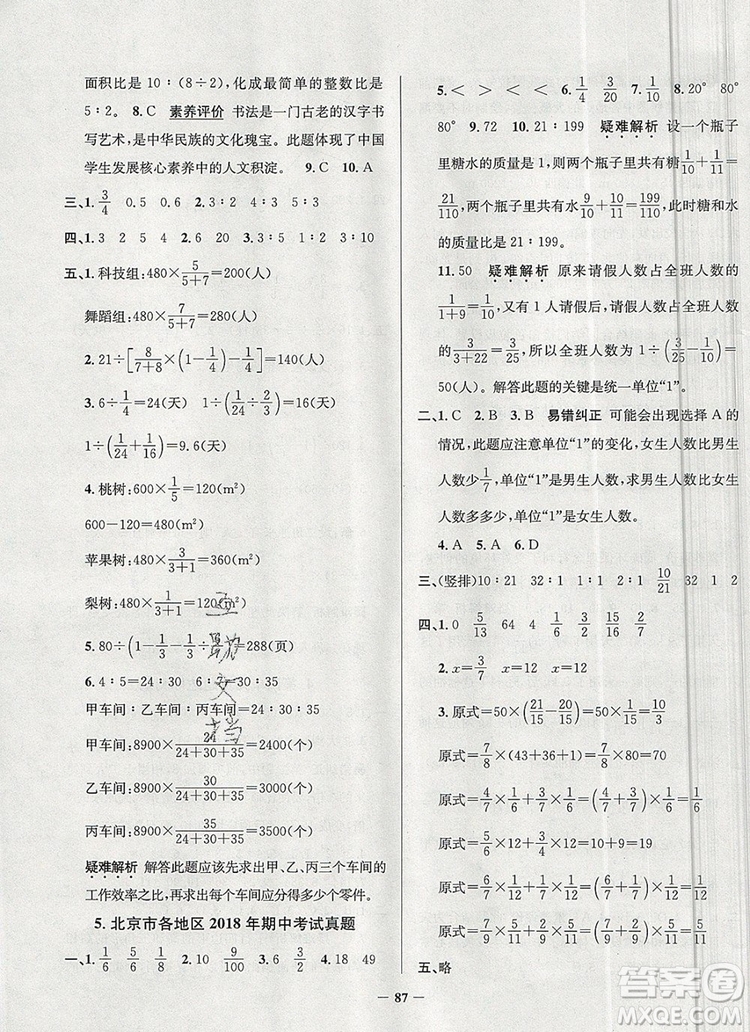 面积比是 10∶(8÷2)，化成最简单的整数比是
5∶2。 8.C 素养评价 书法是一门古老的汉字书
写艺术，是中华民族的文化瑰宝。此题体现了中国
学生发展核心素养中的人文积淀。 9.C 10.A
三、1. 3/4 0.5 0.6 2.3∶2 4∶3 5∶3
四、1.3 2 5 4 2.6 20 3.3∶5 1∶2 1∶3
五、1.科技组:480×5/(5+7)=200(人)
舞蹈组:480×7/(5+7)=280(人)
2.21÷[8/(7+8)×(1-1/4)-1/4]=140(人)
3.6÷1/4=24(天) 1÷(1/24+1/16)
1÷(1/24+1/16)=9.6(天)
4.桃树:600×1/5=120(m²)
600-120=480(m²)
苹果树:480×3/(3+1)=360(m²)
梨树:480×1/(3+1)=120(m²)
5.80÷(1-1/3-1/3×)=288(页)
6.4∶5=24∶30 6∶7=30∶35
甲车间∶乙车间∶丙车间=24∶30∶35
甲车间:8900×24/(24+30+35)=2400(个)
乙车间:8900×30/(24+30+35)=3000(个)
丙车间:8900×35/(24+30+35)=3500(个)
疑难解析 解答此题应该先求出甲、乙、丙三个车间的
工作效率之比，再求出每个车间应分得多少个零件。
5. 北京市各地区 2018 年期中考试真题
一、1. 1/6 5/6 2.10 9/100 3. 2/6 4.18 49
5.< > < < 6. 1/4 3/20 7. 1/10 8.20° 80°
80° 9.72 10.21∶199 疑难解析 设一个瓶子
里糖水的质量是 1，则两个瓶子里共有糖 1/10+1/11=
21/110，两个瓶子里共有水 9/10+10/11=199/110，此时糖和水
的质量比是 21∶199。
11.50 疑难解析 原来请假人数占全班人数的
1/(1+9)=1/10，又有 1 人请假后，请假人数占全班人数
的3/(3+22)=3/25，所以全班人数为 1÷(3/25-1/10)=
50(人)。解答此题的关键是统一单位“1”。
二、1.C 2.B 3.B 易错纠正 可能会出现选择 A 的
情况，此题应注意单位“1”的变化，女生人数比男生
人数少1/7，单位“1”是男生人数。求男生人数比女生
人数多多少，单位“1”是女生人数。
4.A 5.A 6.D
三、(竖排)10∶21 32∶1 1∶2 1∶1 10/21 32 1/2
四、1.0 5/13 64 4 1/6 3/2 15/16 2/7
2.x=3/7 x=12 x=15
3.原式=50×(21/15-20/15)=50×1/15=10/3
原式=7/8×(43+36+1)=7/8×80=70
原式=4/7×1/6+3/7×1/6=(4/7+3/7)×1/6=1/6
原式=4/9×36+5/18×36=12+10+9=19
原式=2/9×5/7+7/9×5/7=(2/9+7/9)×5/7=5/7
五、略
— 87 —
答案圈
MXQE.COM